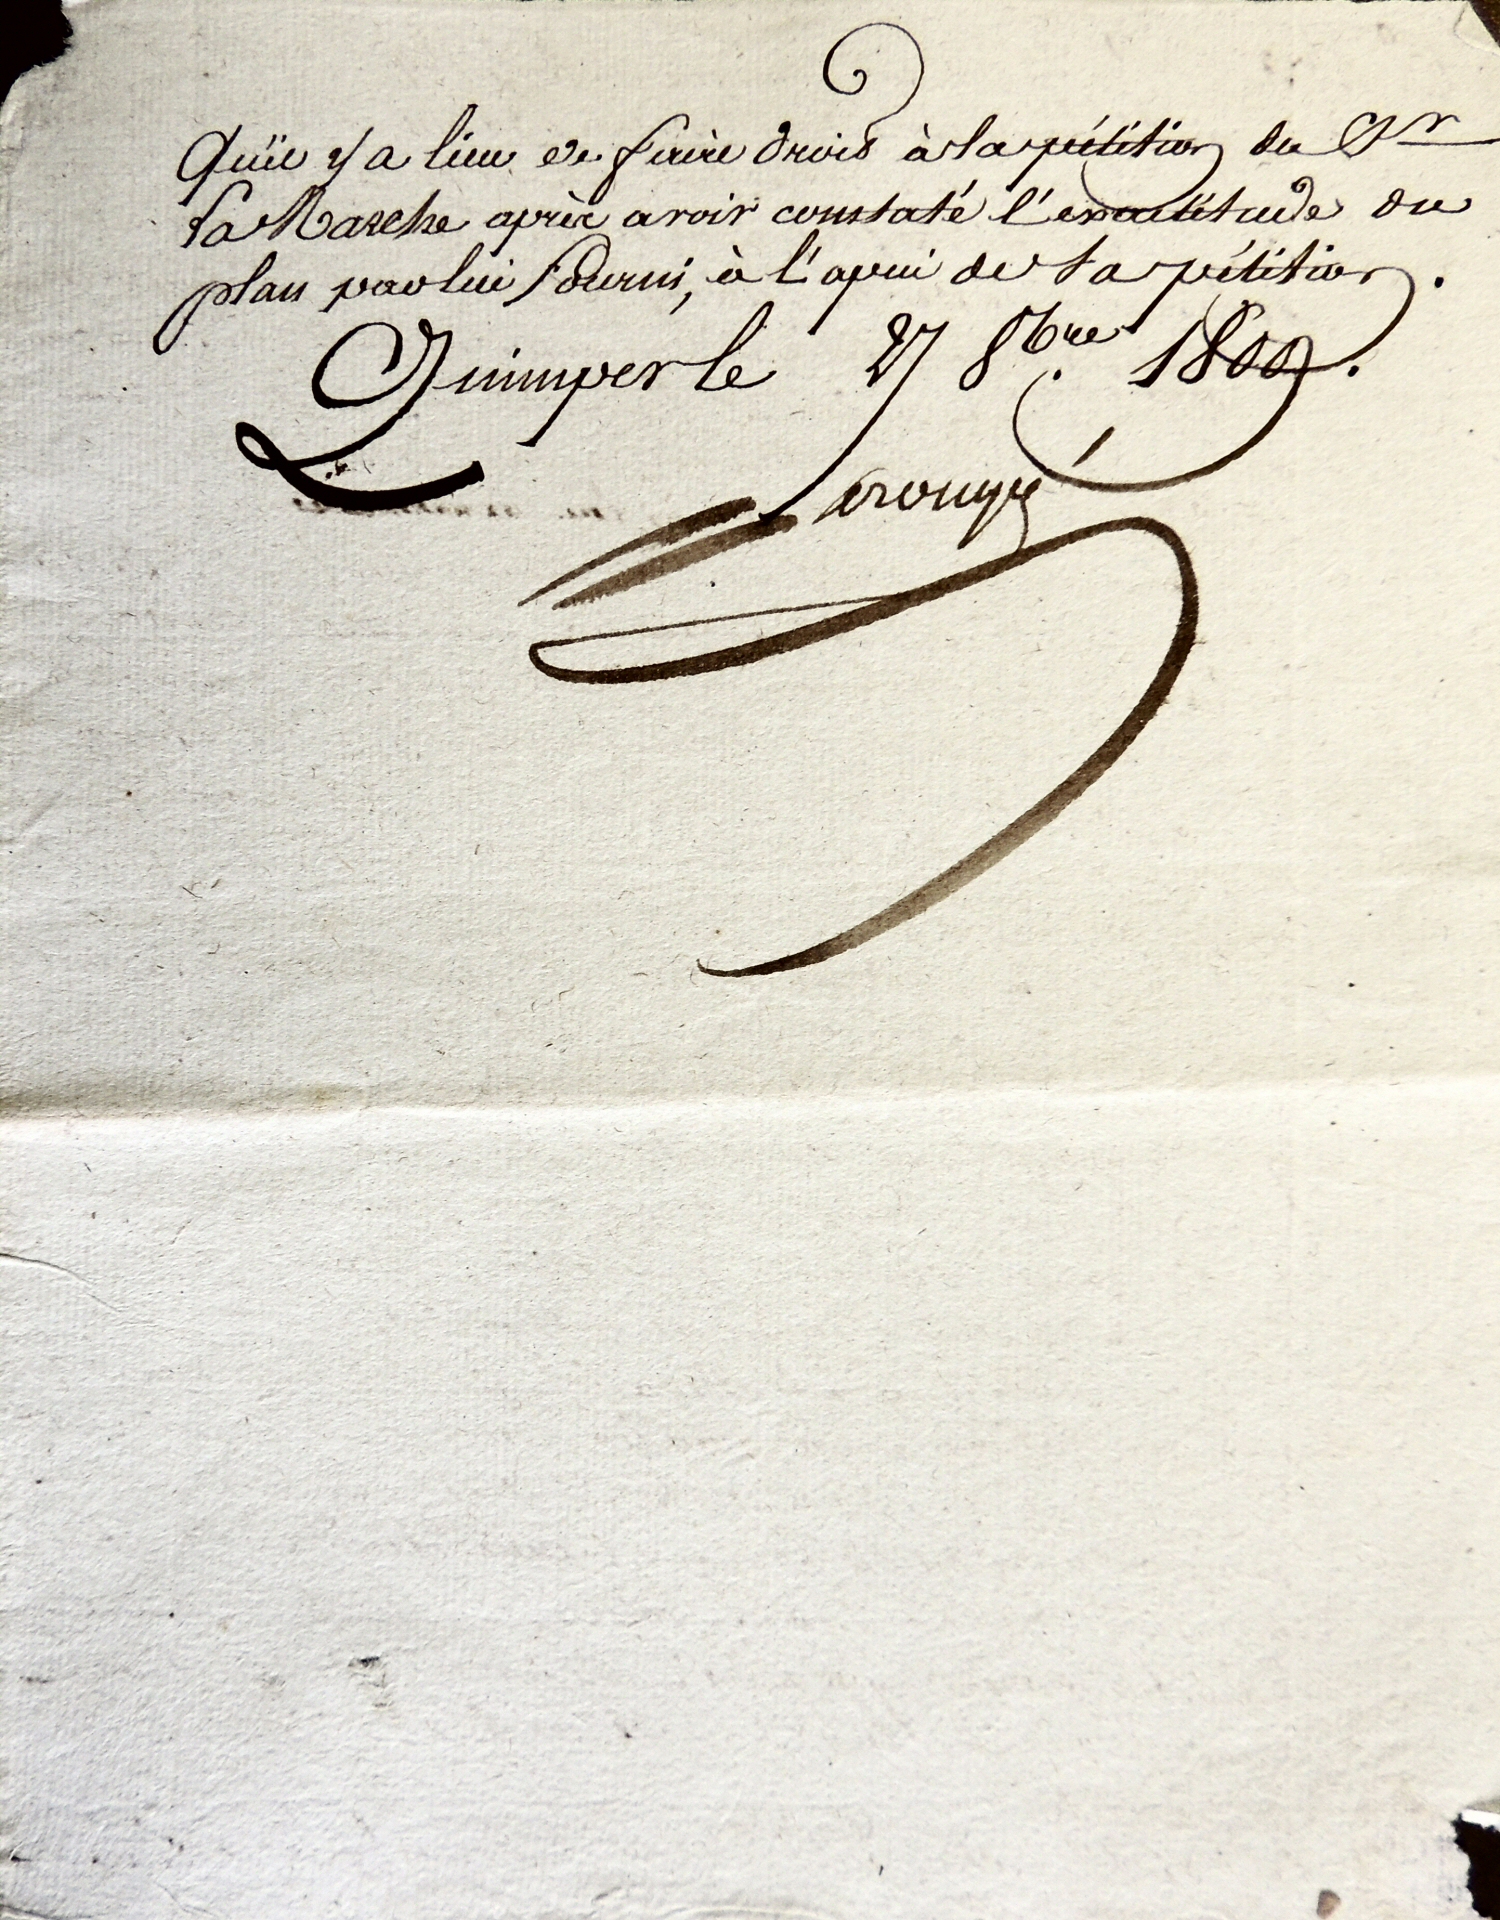 Qu'il y a lieu de faire droit à la pétition du Sr
La Marche après avoir constaté l'exactitude du
plan par lui fourni, à l'apui de sa pétition.
Quimperlé 27 8bre 1809.